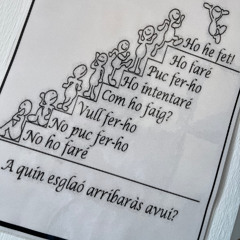 Ho he fet!
Ho faré
Puc fer-ho
Ho intentaré
Com ho faig?
Vull fer-ho
No puc fer-ho
No ho faré
A quin esglaó arribaràs avui?